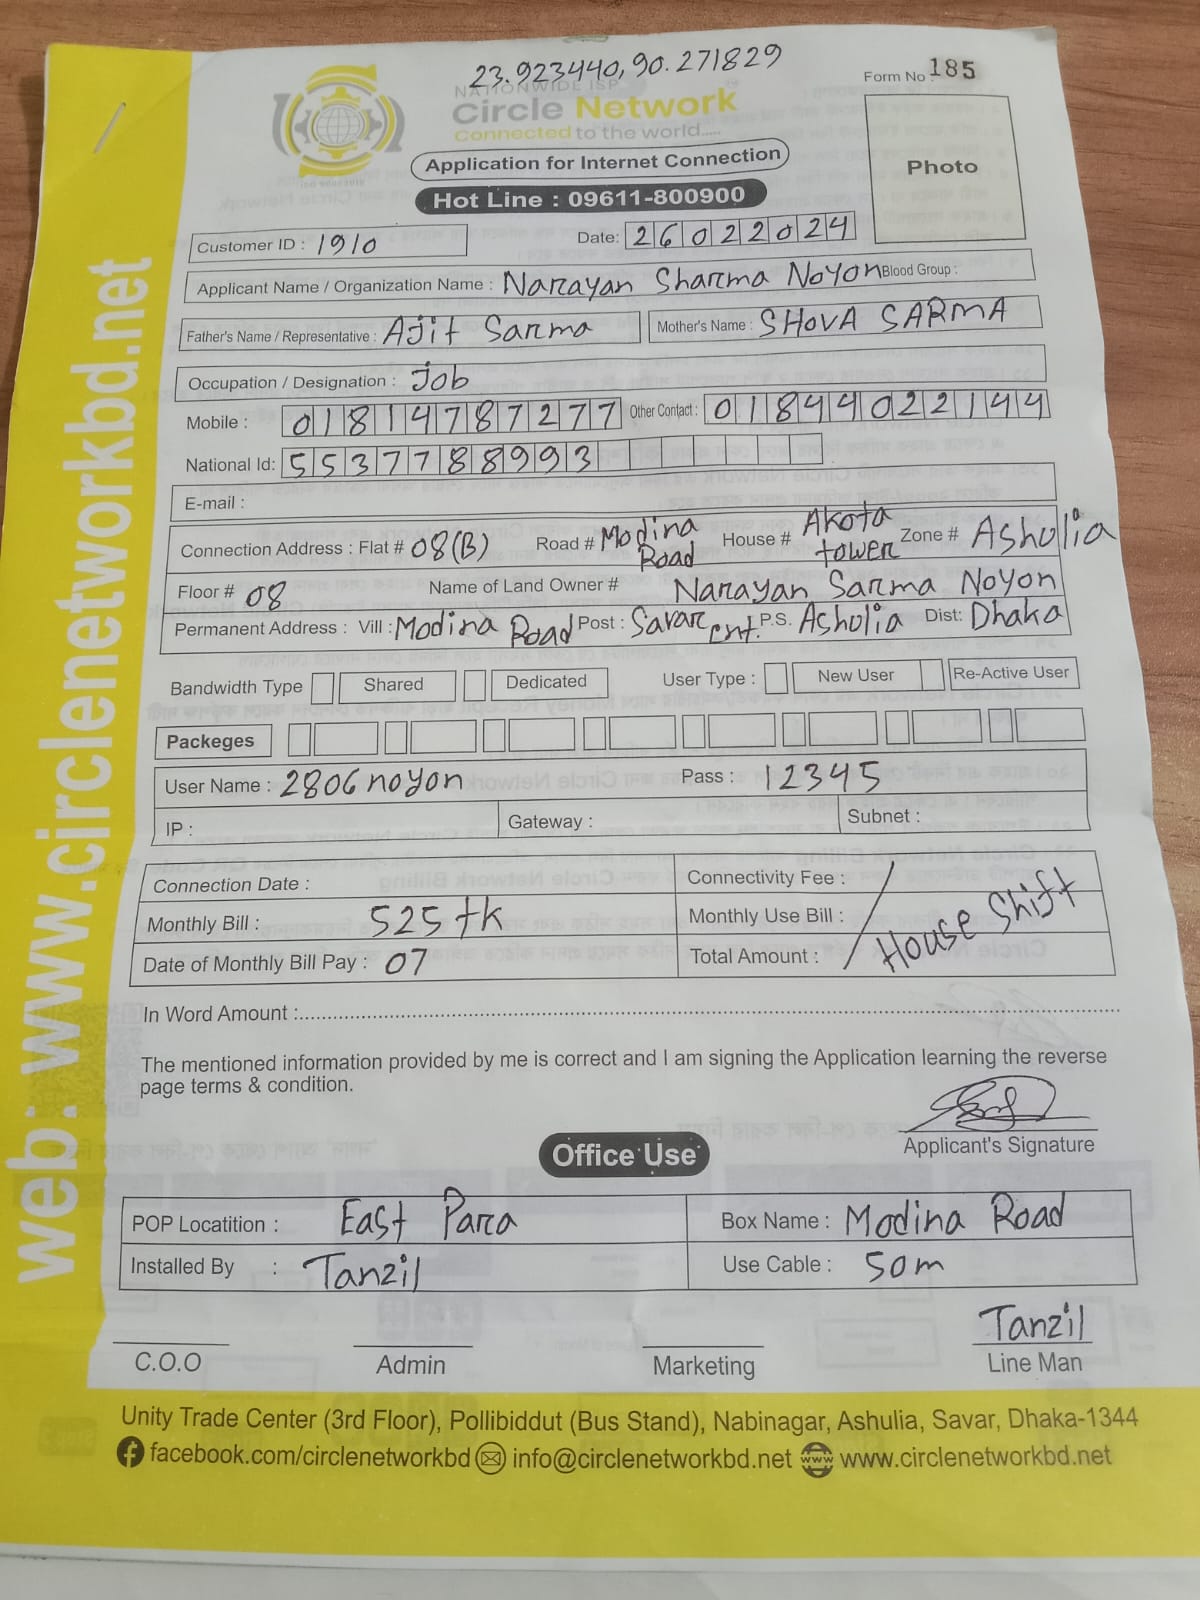 23.923440, 90.271829
Form No : 185
NATIONWIDE ISP
Circle Network
Connected to the world.....
ISO 9001:2015
Application for Internet Connection
Photo
Hot Line : 09611-800900
Customer ID : 1910
Date: 26022024
Applicant Name / Organization Name : Narayan Sharma Noyon Blood Group :
Father's Name / Representative : Ajit Sarma Mother's Name : SHOVA SARMA
Occupation / Designation : Job
Mobile : 01814787277 Other Contact : 01844022144
National Id: 5537788993
E-mail :
Connection Address : Flat # 08(B) Road # Modina Road House # Akota tower Zone # Ashulia
Floor # 08 Name of Land Owner # Narayan Sarma Noyon
Permanent Address : Vill : Modina Road Post : Savar cnt. P.S. Ashulia Dist: Dhaka
Bandwidth Type Shared Dedicated User Type : New User Re-Active User
Packeges
User Name : 2806noyon Pass : 12345
IP : Gateway : Subnet :
Connection Date : Connectivity Fee :
Monthly Bill : 525 tk Monthly Use Bill :
Date of Monthly Bill Pay : 07 Total Amount :
House Shift
In Word Amount :
The mentioned information provided by me is correct and I am signing the Application learning the reverse
page terms & condition.
Applicant's Signature
Office Use
POP Locatition : East Para Box Name : Modina Road
Installed By : Tanzil Use Cable : 50m
Tanzil
C.O.O Admin Marketing Line Man
Unity Trade Center (3rd Floor), Pollibiddut (Bus Stand), Nabinagar, Ashulia, Savar, Dhaka-1344
facebook.com/circlenetworkbd info@circlenetworkbd.net www www.circlenetworkbd.net
web: www.circlenetworkbd.net